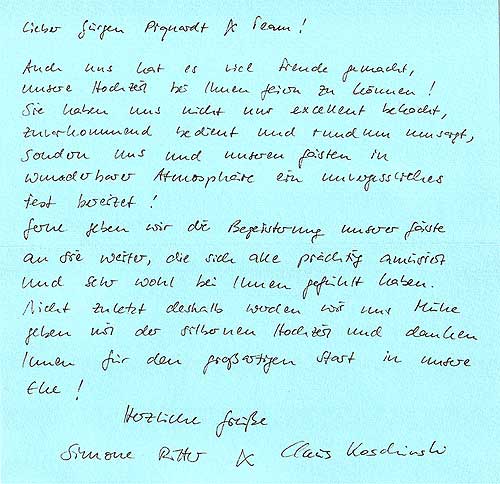 Lieber Jürgen Piquardt & Team!
Auch uns hat es viel Freude gemacht,
unsere Hochzeit bei Ihnen feiern zu können!
Sie haben uns nicht nur excellent bekocht,
zuvorkommend bedient und rundum umsorgt,
sondern uns und unseren Gästen in
wunderbarer Atmosphäre ein unvergessliches
Fest bereitet!
Gerne geben wir die Begeisterung unserer Gäste
an Sie weiter, die sich alle prächtig amüsiert
und sehr wohl bei Ihnen gefühlt haben.
Nicht zuletzt deshalb werden wir uns Mühe
geben mit der silbernen Hochzeit und danken
Ihnen für den großartigen Start in unsere
Ehe!
Herzliche Grüße
Simone Ritter & Claus Koschinski